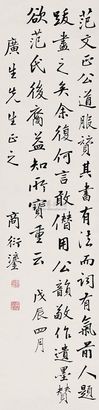 范文正公道服赞其書有法而詞有氣前人題
跋盡之矣余復何言敢僭用公韻敬作遺墨贊
欲范氏後裔益知所寶重云 戊辰四月
廣生先生正之 商衍鎏